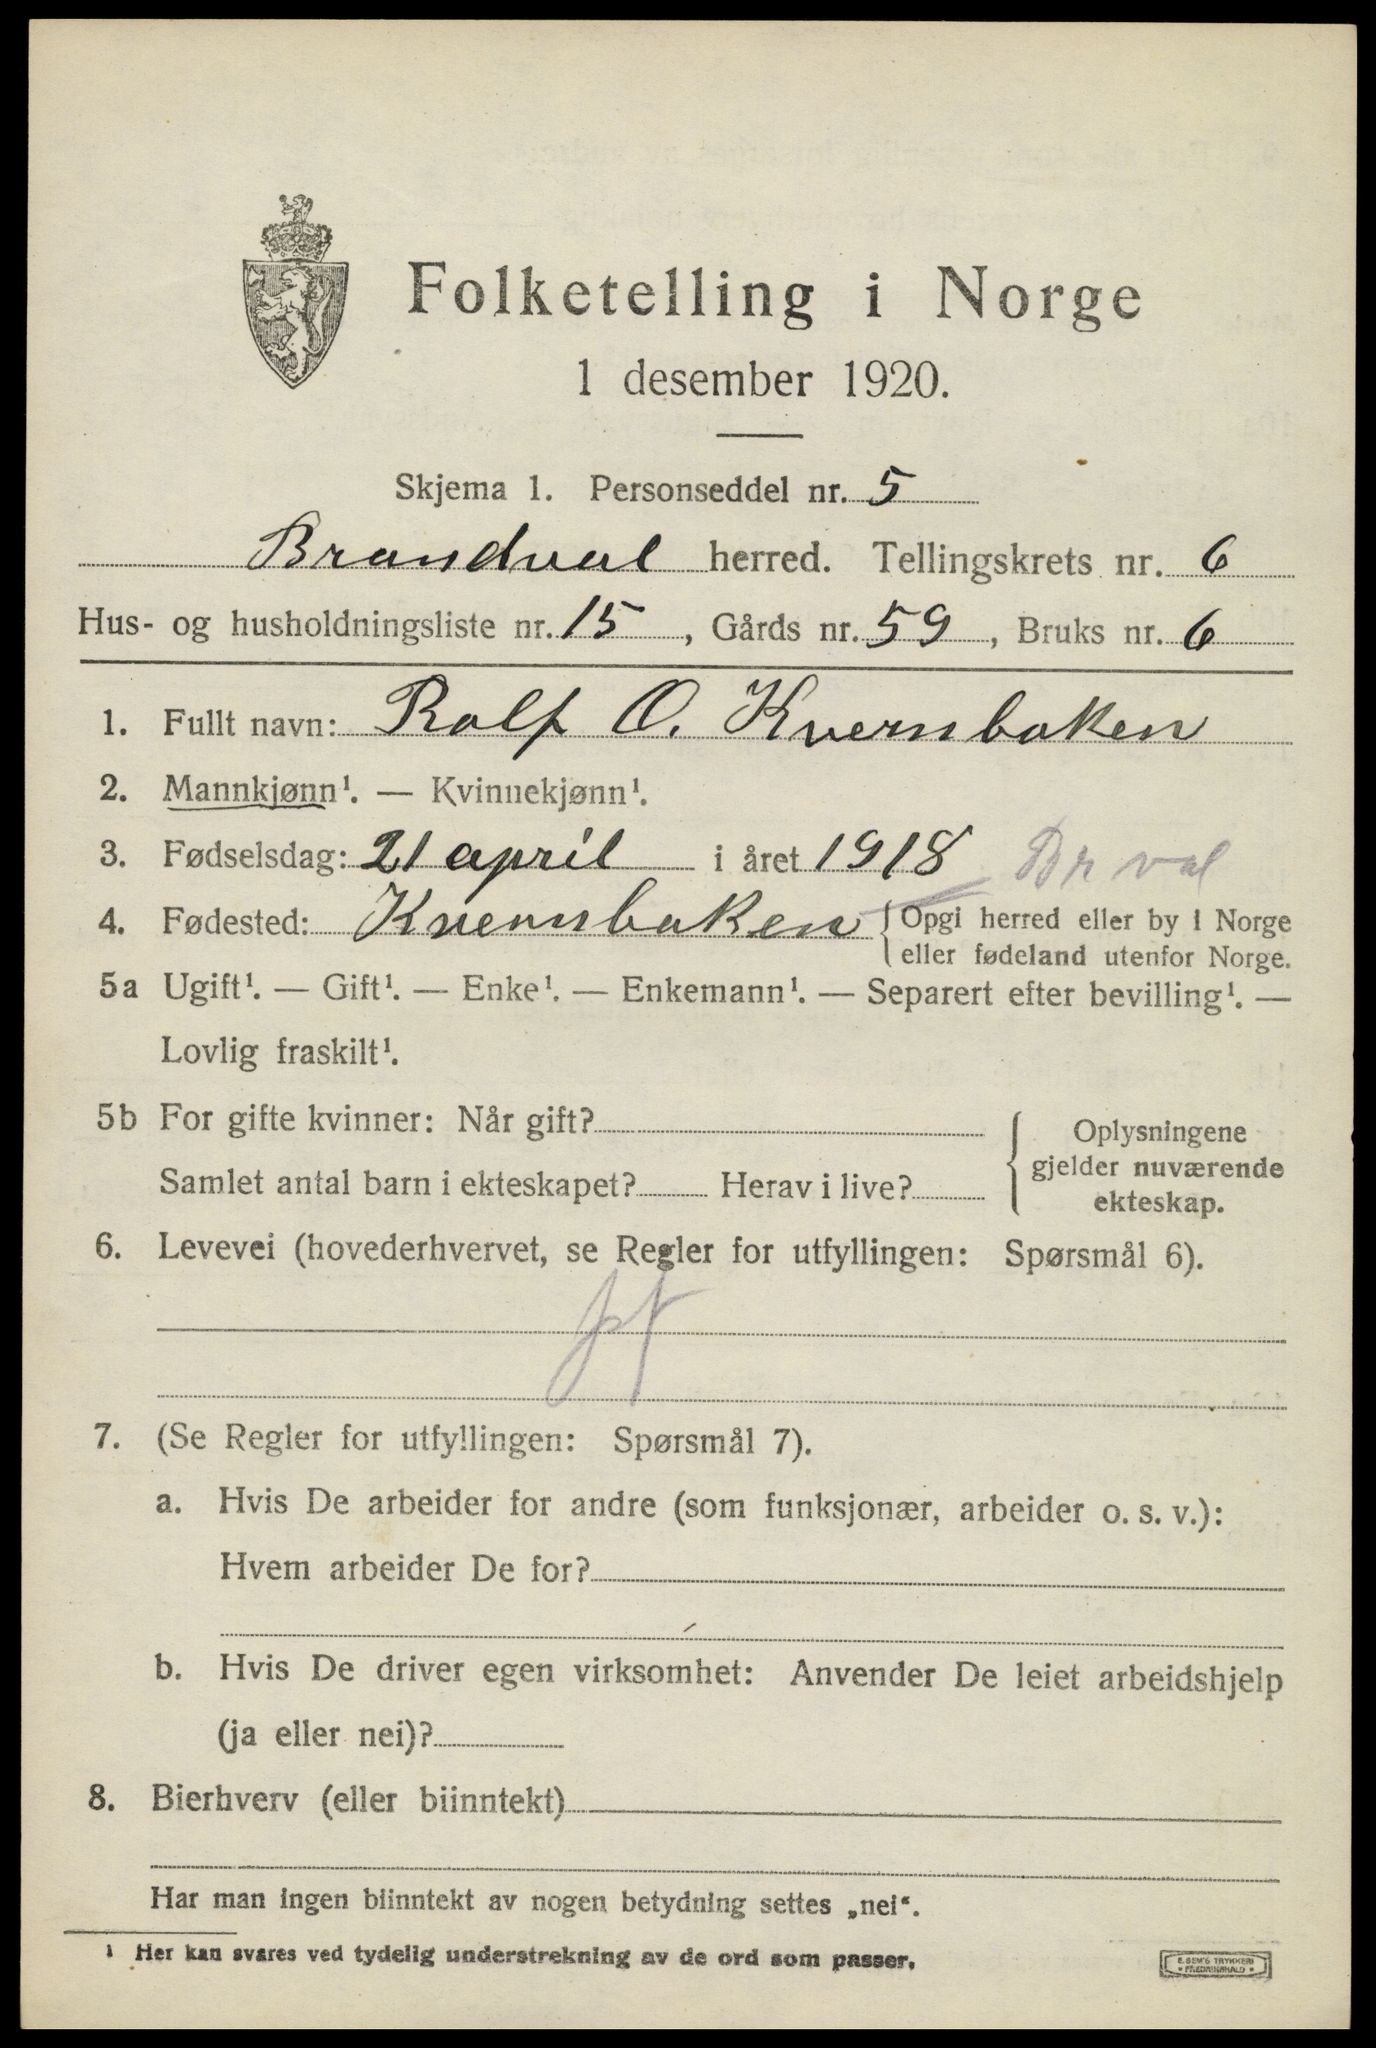 Folketelling i Norge
1 desember 1920.
Skjema 1. Personseddel nr. 5
Brandval herred. Tellingskrets nr. 6
Hus- og husholdningsliste nr. 15, Gårds nr. 59, Bruks nr. 6
1. Fullt navn: Rolf O. Kvernbaken
2. Mannkjønn¹. — Kvinnekjønn¹.
3. Fødselsdag: 21 april i året 1918 Br val
4. Fødested: Kvernbaken { Opgi herred eller by i Norge
eller fødeland utenfor Norge.
5a Ugift¹. — Gift¹. — Enke¹. — Enkemann¹. — Separert efter bevilling¹. —
Lovlig fraskilt¹.
5b For gifte kvinner: Når gift?
Samlet antal barn i ekteskapet? Herav i live?
Oplysningene
gjelder nuværende
ekteskap.
6. Levevei (hovederhvervet, se Regler for utfyllingen: Spørsmål 6).
7. (Se Regler for utfyllingen: Spørsmål 7).
a. Hvis De arbeider for andre (som funksjonær, arbeider o. s. v.):
Hvem arbeider De for?
b. Hvis De driver egen virksomhet: Anvender De leiet arbeidshjelp
(ja eller nei)?
8. Bierhverv (eller biinntekt)
Har man ingen biinntekt av nogen betydning settes „nei“.
¹ Her kan svares ved tydelig understrekning av de ord som passer.
E. SEM'S TRYKKERI
FREDRIKSHALD